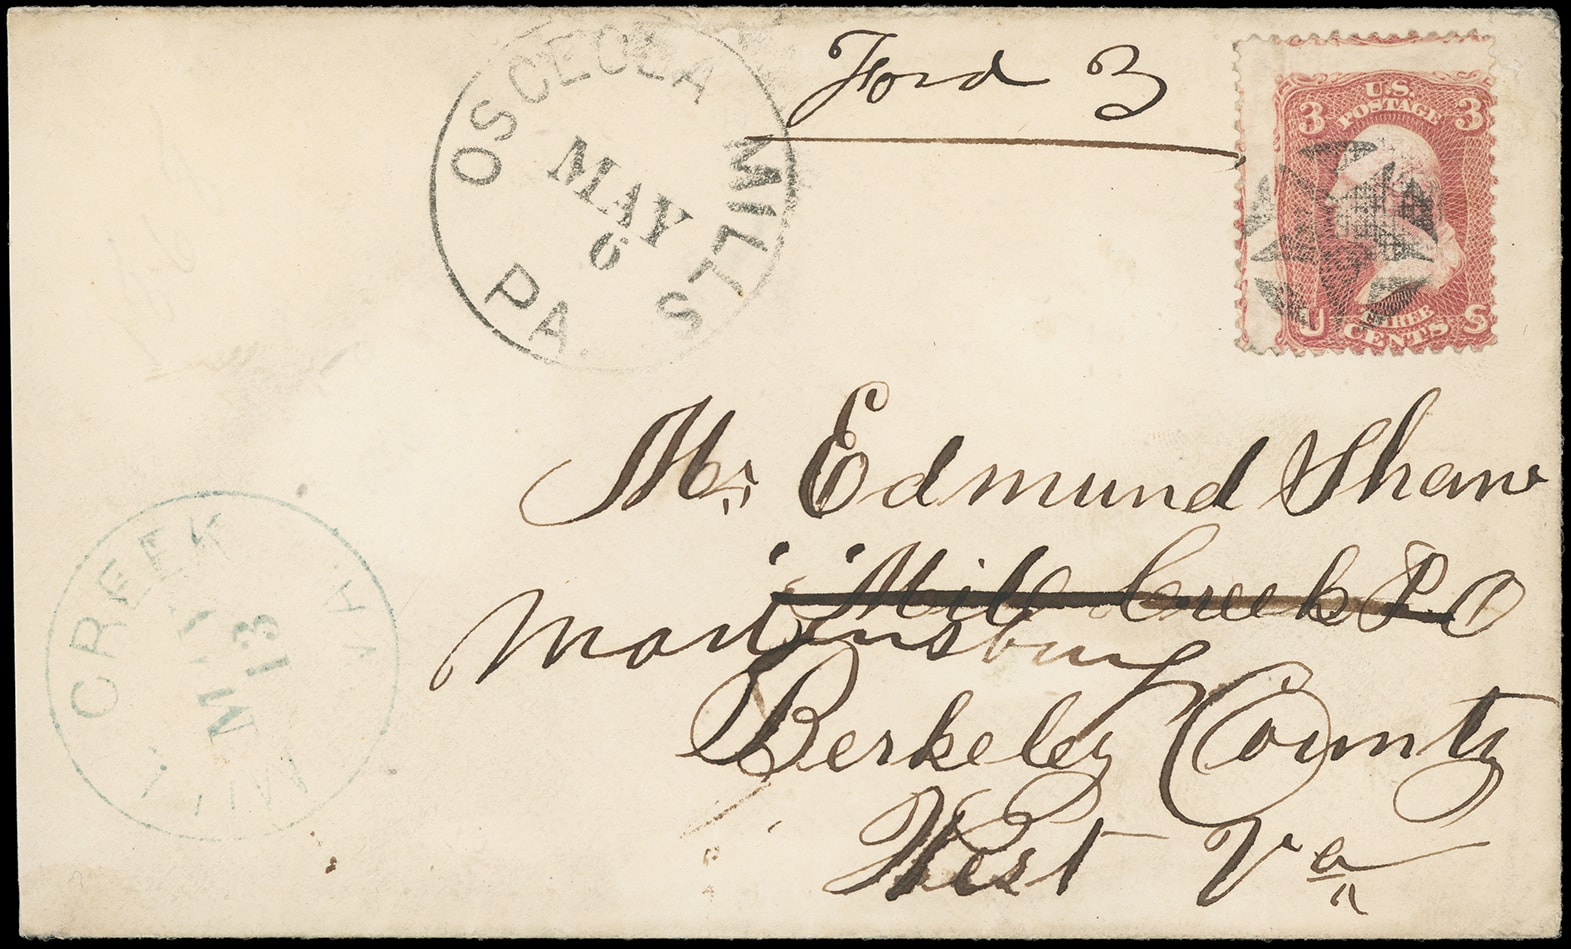 OSCEOLA MILLS
PA.
MAY
6
Ford 3
U.S.
POSTAGE
3 3
THREE
CENTS
U S
Mr Edmund Shaw
"Mill Creek P O
Martinsburg
Berkeley County
West Va
MILL CREEK VA
MAY
13